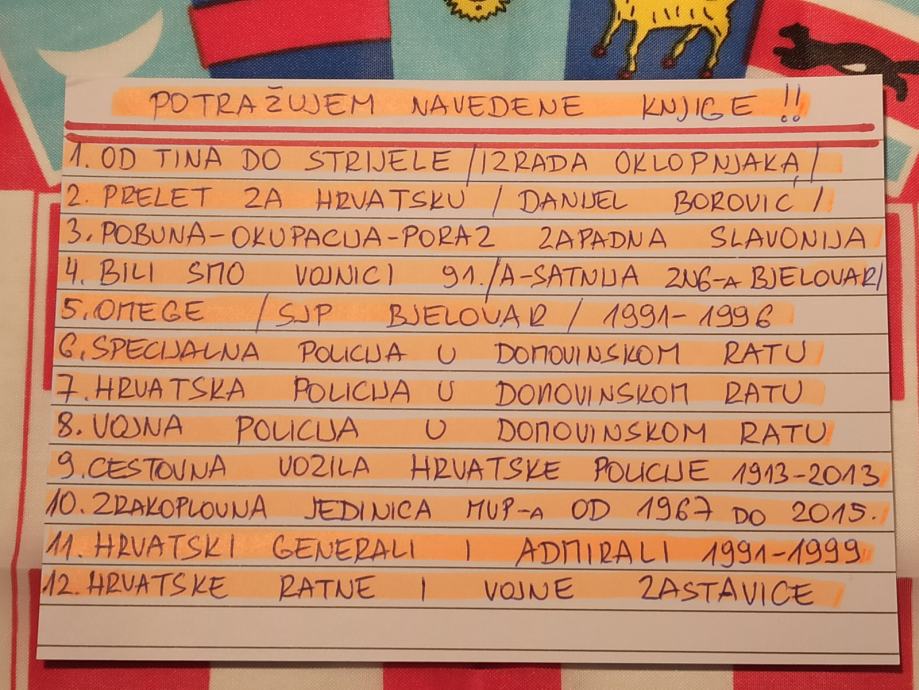 POTRAŽUJEM NAVEDENE KNJIGE !!
1. OD TINA DO STRIJELE /IZRADA OKLOPNJAKA/
2. PRELET ZA HRVATSKU / DANIJEL BOROVIĆ /
3. POBUNA-OKUPACIJA-PORAZ ZAPADNA SLAVONIJA
4. BILI SMO VOJNICI 91. /A-SATNIJA ZNG-A BJELOVAR/
5. OMEGE /SJP BJELOVAR / 1991-1996
6. SPECIJALNA POLICIJA U DOMOVINSKOM RATU
7. HRVATSKA POLICIJA U DOMOVINSKOM RATU
8. VOJNA POLICIJA U DOMOVINSKOM RATU
9. CESTOVNA VOZILA HRVATSKE POLICIJE 1913-2013
10. ZRAKOPLOVNA JEDINICA MUP-A OD 1967 DO 2015.
11. HRVATSKI GENERALI I ADMIRALI 1991-1999
12. HRVATSKE RATNE I VOJNE ZASTAVICE